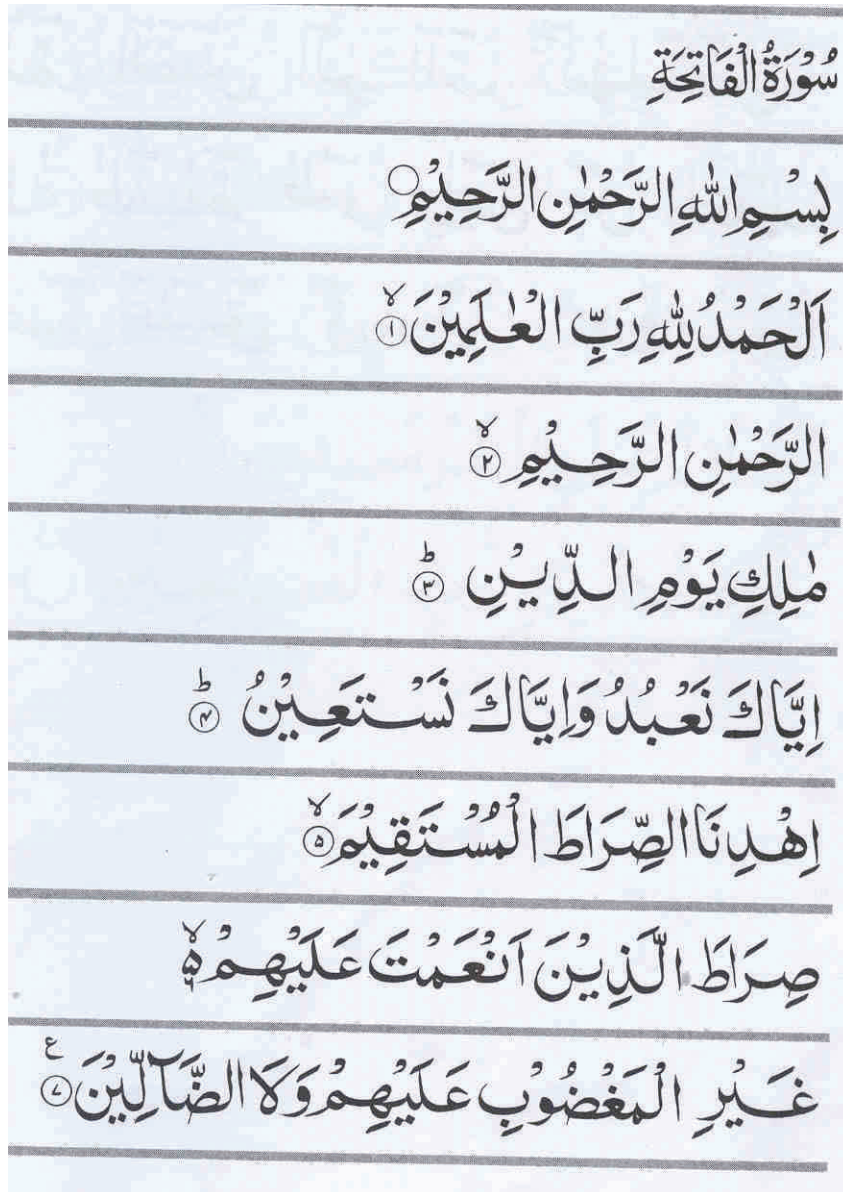 سُوْرَةُ الْفَاتِحَةِ
بِسْمِ اللّٰهِ الرَّحْمٰنِ الرَّحِيْمِ ○
اَلْحَمْدُ لِلّٰهِ رَبِّ الْعٰلَمِيْنَ ۙ ١
الرَّحْمٰنِ الرَّحِيْمِ ۙ ٢
مٰلِكِ يَوْمِ الدِّيْنِ ؕ ٣
اِيَّاكَ نَعْبُدُ وَاِيَّاكَ نَسْتَعِيْنُ ؕ ۴
اِهْدِنَا الصِّرَاطَ الْمُسْتَقِيْمَ ۙ ۵
صِرَاطَ الَّذِيْنَ اَنْعَمْتَ عَلَيْهِمْ ۙ
غَيْرِ الْمَغْضُوْبِ عَلَيْهِمْ وَلَا الضَّآلِّيْنَ ع ٧